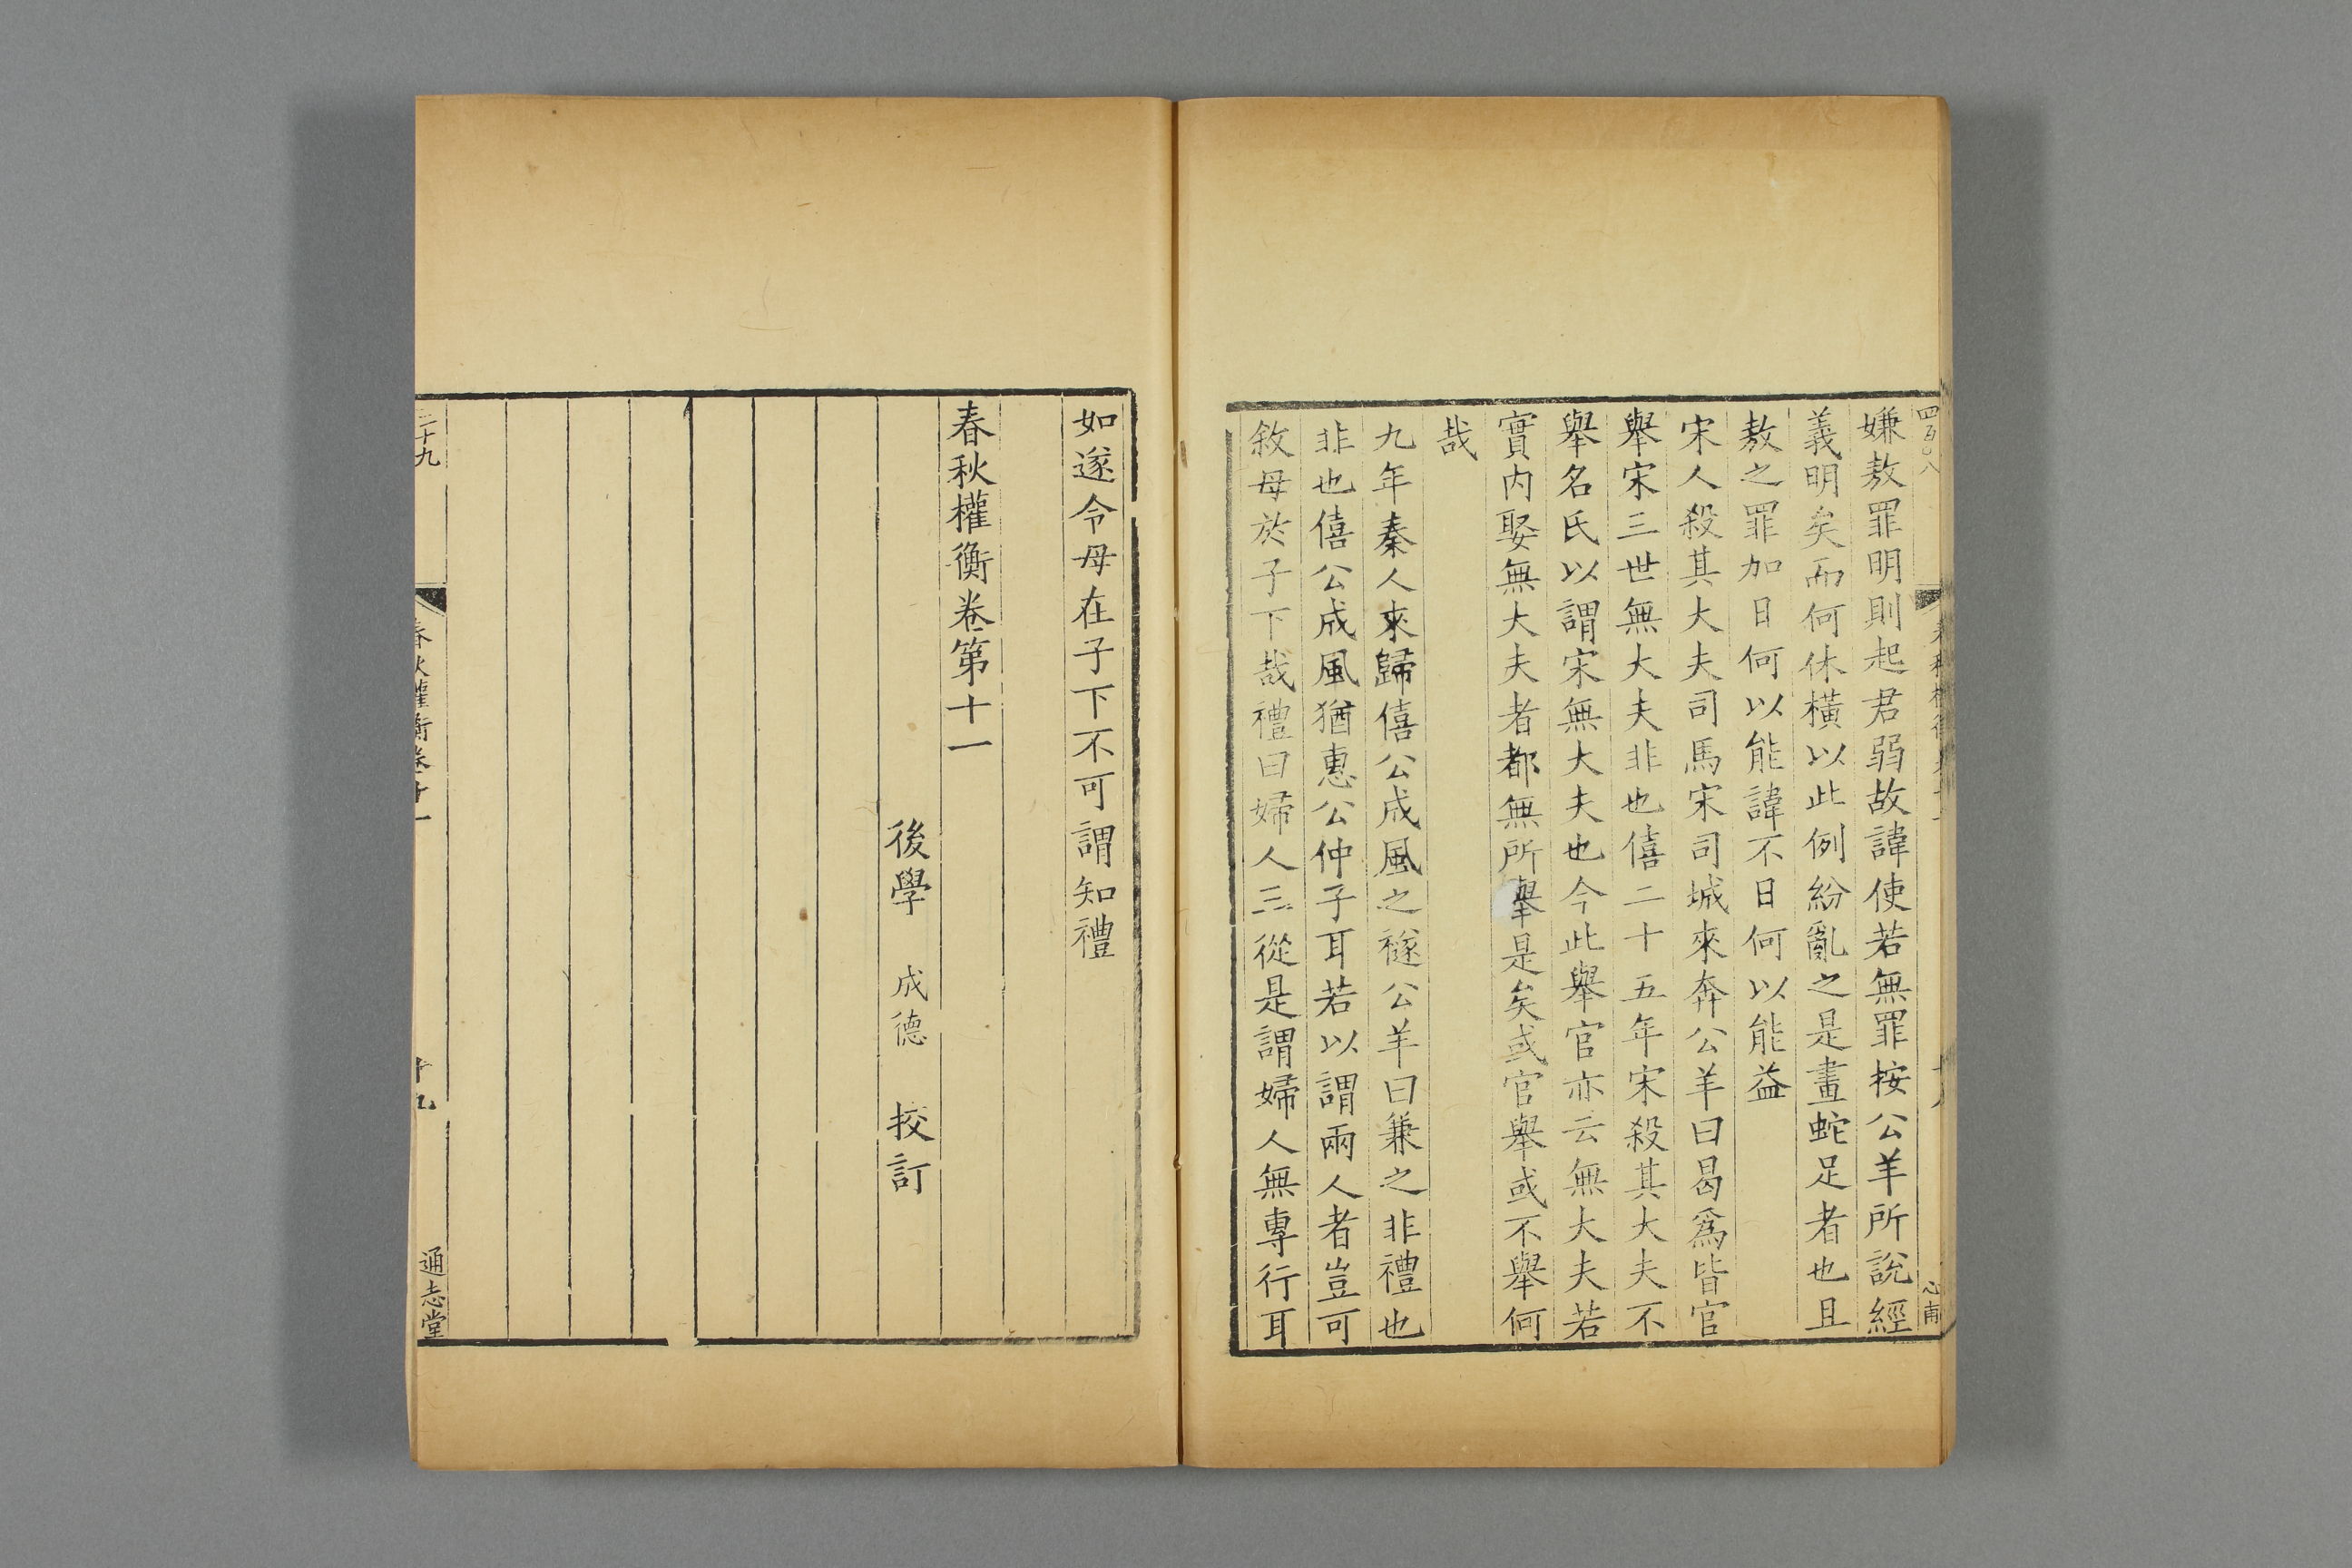 四百〇八
心甫
嫌敖罪明則起君弱故諱使若無罪按公羊所說經
義明矣而何休橫以此例紛亂之是畫蛇足者也且
敖之罪加日何以能諱不日何以能益
宋人殺其大夫司馬宋司城來奔公羊曰曷爲皆官
舉宋三世無大夫非也僖二十五年宋殺其大夫不
舉名氏以謂宋無大夫也今此舉官亦云無大夫若
實内娶無大夫者都無所舉是矣或官舉或不舉何
哉
九年秦人來歸僖公成風之襚公羊曰兼之非禮也
非也僖公成風猶惠公仲子耳若以謂兩人者豈可
敘母於子下哉禮曰婦人三從是謂婦人無專行耳
如遂令母在子下不可謂知禮
春秋權衡卷第十一
後學 成德 挍訂
二十九
春秋權衡卷十一
十九
通志堂